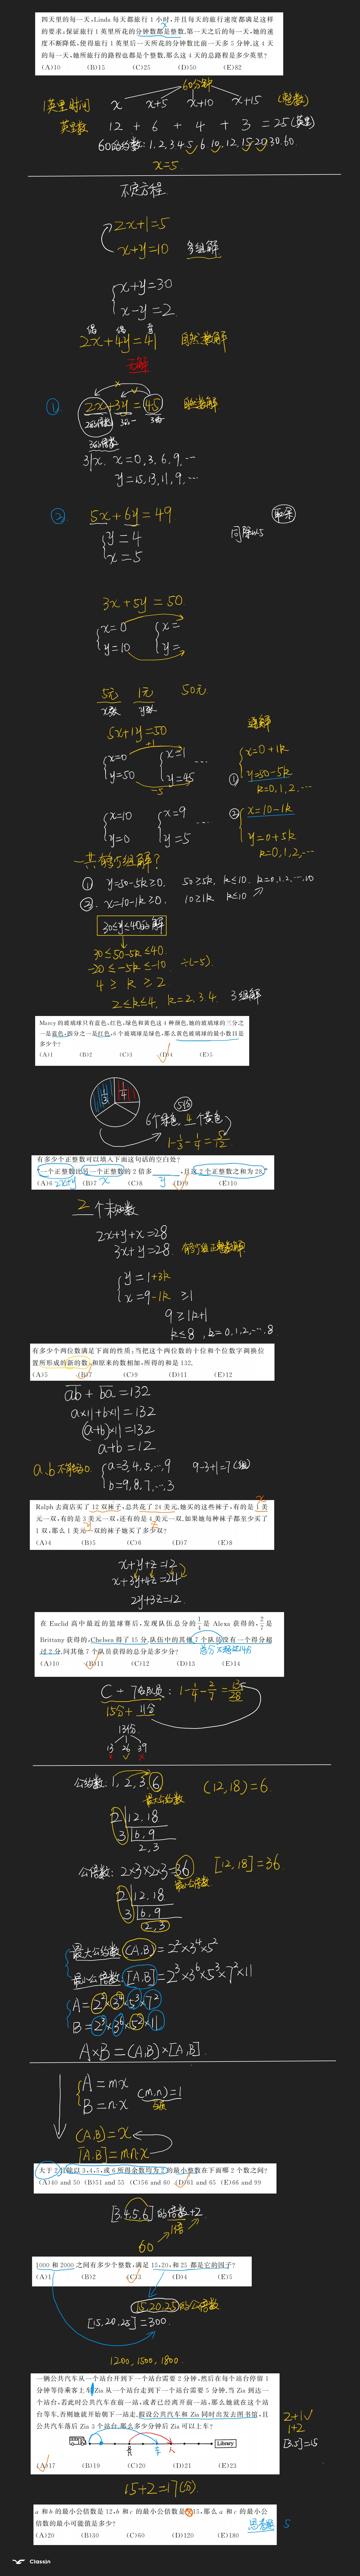 四天里的每一天,Linda每天都旅行1小时,并且每天的旅行速度都满足这样
的要求:保证旅行1英里所花的分钟数都是整数.第一天之后的每一天,她的速
度不断降低,使得旅行1英里后一天所花的分钟数比前一天多5分钟.这4天
的每一天,她所旅行的路程也都是个整数,那么这4天的总路程是多少英里?
(A)10 (B)15 (C)25 (D)50 (E)82
60分钟
1英里时间 x x+5 x+10 x+15 (整数)
英里数 12 + 6 + 4 + 3 = 25(英里)
60的约数: 1, 2, 3, 4, 5, 6, 10, 12, 15, 20, 30, 60.
x=5.
不定方程
2x+1=5
x+y=10 多组解
x+y=30
x-y=2.
偶 偶 奇
2x+4y=41 自然数解
无解
① 2x+3y=45 自然数解
3的倍数
3|x. x=0, 3, 6, 9, …
y=15, 13, 11, 9, …
② 5x+6y=49
y=4
x=5
同除以5
3x+5y=50
x=0 x=
y=10 y=
5元 1元 50元
x张 y张
5x+1y=50 通解
x=0 +1 x=1 …
y=50 -5 y=45
① x=0+1k
y=50-5k
k=0,1,2,…
x=10 x=9 …
y=0 y=5
② x=10-1k
y=0+5k
k=0,1,2,…
一共有多少组解?
① y=50-5k≥0. 50≥5k. k≤10. k=0,1,2,…,10
② x=10-1k≥0. 10≥1k k≤10
30≤y≤40的解
30≤50-5k≤40.
-20≤-5k≤-10. ÷(-5).
4≥k≥2
2≤k≤4. k=2.3.4. 3组解
Marcy的玻璃球只有蓝色、红色、绿色和黄色这4种颜色,她的玻璃球的三分之
一是蓝色,四分之一是红色,6个玻璃球是绿色,那么黄色玻璃球的最小数目是
多少个?
(A)1 (B)2 (C)3 (D)4 (E)5
1/3 1/4
5份
6个绿色, 4个黄色
1-1/3-1/4=5/12
有多少个正整数可以填入下面这句话的空白处?
“一个正整数比另一个正整数的2倍多____,且这2个正整数之和为28.”
(A)6 (B)7 (C)8 (D)9 (E)10
2x+y x y
2个未知数
2x+y+x=28
3x+y=28 有多少组正整数解
y=1+3k
x=9-1k ≥1
9≥1k+1
k≤8, k=0,1,2,…8
有多少个两位数满足下面的性质:当把这个两位数的十位和个位数字调换位
置所形成的新的数,和原来的数相加,所得的和是132.
(A)5 (B)7 (C)9 (D)11 (E)12
ab + ba = 132
a×11+b×11=132
(a+b)×11=132
a+b=12.
a,b不能为0. a=3,4,5,…,9
b=9,8,7,…,3
9-3+1=7(组)
Ralph去商店买了12双袜子,总共花了24美元.她买的这些袜子,有的是1美
元一双,有的是3美元一双,还有的是4美元一双.如果她每种袜子都至少买了
1双,那么1美元一双的袜子她买了多少双?
(A)4 (B)5 (C)6 (D)7 (E)8
x y z
x+y+z=12
x+3y+4z=24
2y+3z=12.
在Euclid高中最近的篮球赛后,发现队伍总分的1/4是Alexa获得的,2/7是
Brittany获得的,Chelsea得了15分.队伍中的其他7个队员没有一个得分超
过2分.问其他7个队员获得的总分是多少分?
总分不超过14分
(A)10 (B)11 (C)12 (D)13 (E)14
C + 7名队员: 1-1/4-2/7=13/28
15分+11分
13份
13 26 39
公约数: 1, 2, 3, 6 (12,18)=6.
最大公约数
2 12, 18
3 6, 9
2, 3
公倍数: 2×3×2×3=36 [12,18]=36.
最小公倍数
2 12, 18
3 6, 9
2, 3
最大公约数 (A,B)=2²×3⁴×5²
最小公倍数 [A,B]=2³×3⁶×5³×7²×11
A=2²×3⁴×5³×7²
B=2³×3⁶×5²×11
A×B=(A,B)×[A,B].
A=m·x (m,n)=1
B=n·x 互质
(A,B)=x
[A,B]=m·n·x
大于2且除以3,4,5,或6所得余数均为2的最小整数在下面哪2个数之间?
(A)40 and 50 (B)51 and 55 (C)56 and 60 (D)61 and 65 (E)66 and 99
[3,4,5,6]的倍数+2
60 1倍
1000和2000之间有多少个整数,满足15,20,和25都是它的因子?
(A)1 (B)2 (C)3 (D)4 (E)5
15,20,25的公倍数
[15,20,25]=300.
1200, 1500, 1800
一辆公共汽车从一个站台开到下一个站台需要2分钟,然后在每个站台停留1
分钟等待乘客上车.Zia从一个站台走到下一个站台需要5分钟.当Zia到达一
个站台,若此时公共汽车在前一站,或者已经离开前一站,那么她就在这个站
台等车,否则她就开始朝下一站走.假设公共汽车和Zia同时出发去图书馆,且
公共汽车落后Zia 3个站台,那么多少分钟后Zia可以上车?
Library
(A)17 (B)19 (C)20 (D)21 (E)23
2+1
1+2
[3,5]=15
15+2=17(分)
a和b的最小公倍数是12,b和c的最小公倍数是15,那么a和c的最小公
倍数的最小可能值是多少?
(A)20 (B)30 (C)60 (D)120 (E)180
思考题 5
ClassIn